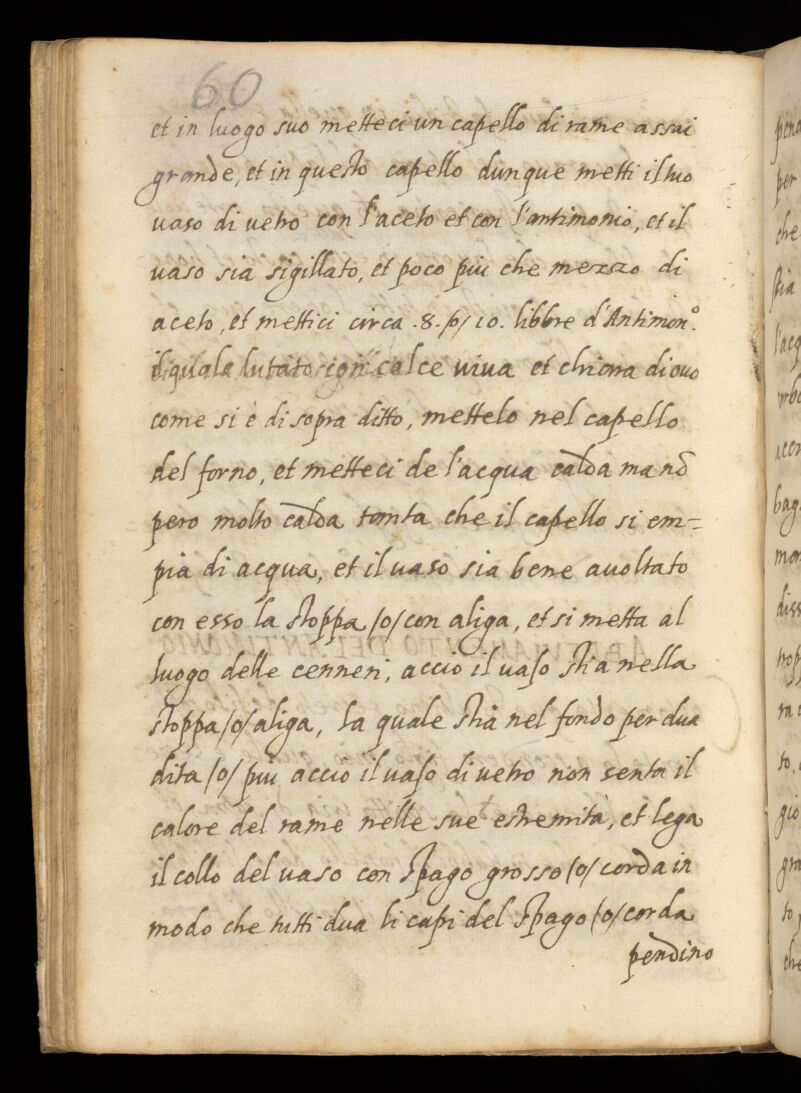 60
et in luogo suo metteci un capello di rame assai
grande, et in questo capello dunque metti il tuo
uaso di uetro con l'aceto et con l'antimonio, et il
uaso sia sigillato, et poco piu che mezzo di
aceto, et mettici circa .8. p/ 10. libbre d'Antimon.º
il quale lutato calce uiua et chiara di ouo
come si è di sopra ditto, mettelo nel capello
del forno, et metteci de l'acqua calda ma nō
pero molto calda tanta che il capello si em=
pia di acqua, et il uaso sia bene auoltato
con esso la stoppa /o/ con aliga, et si metta al
luogo delle cenneri, accio il uaso stia nella
stoppa /o/ aliga, la quale stià nel fondo per dua
dita /o/ piu accio il uaso di uetro non senta il
calore del rame nelle sue estremità, et lega
il collo del uaso con spago grosso /o/ corda in
modo che tutti dua li capi del spago /o/ corda
pendino